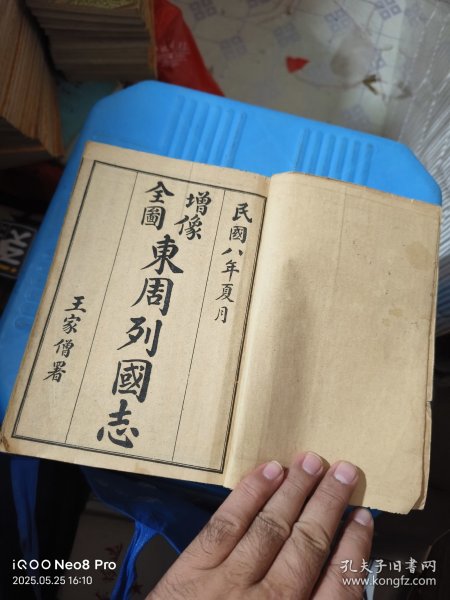 民國八年夏月
增像
全圖
東周列國志
王家僧署
iQOO Neo8 Pro
2025.05.25 16:10
孔夫子旧书网
www.kongfz.com